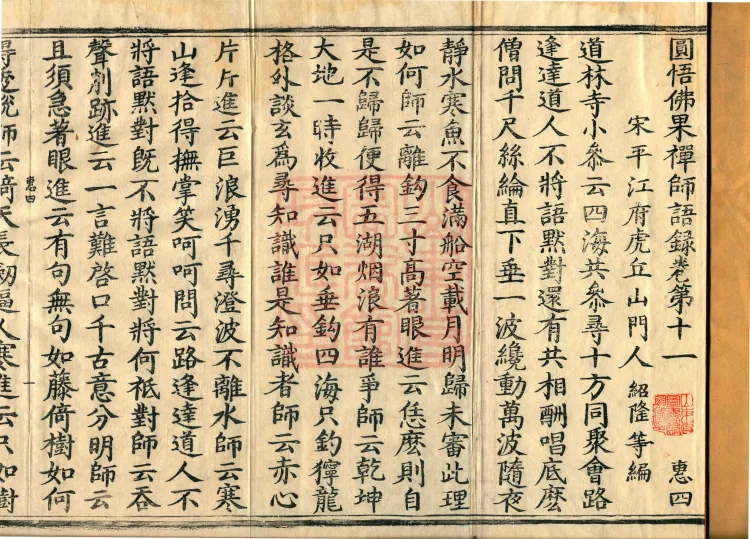 圓悟佛果禪師語錄卷第十一 惠四
宋平江府虎丘山門人 紹隆等編
道林寺小叅云四海共叅尋十方同聚會路
逢達道人不將語默對還有共相酬唱底麽
僧問千尺絲綸直下垂一波纔動萬波隨夜
靜水寒魚不食滿船空載月明歸未審此理
如何師云離鈎三寸高著眼進云恁麽則自
是不歸歸便得五湖烟浪有誰爭師云乾坤
大地一時收進云只如垂鈎四海只釣獰龍
格外談玄爲尋知識誰是知識者師云赤心
片片進云巨浪湧千尋澄波不離水師云寒
山逢拾得撫掌笑呵呵問云路逢達道人不
將語默對旣不將語默對將何祇對師云吞
聲削跡進云一言難啓口千古意分明師云
且須急著眼進云有句無句如藤倚樹如何
惠四
一
得透脫師云倚天長劒逼人寒進云只如樹